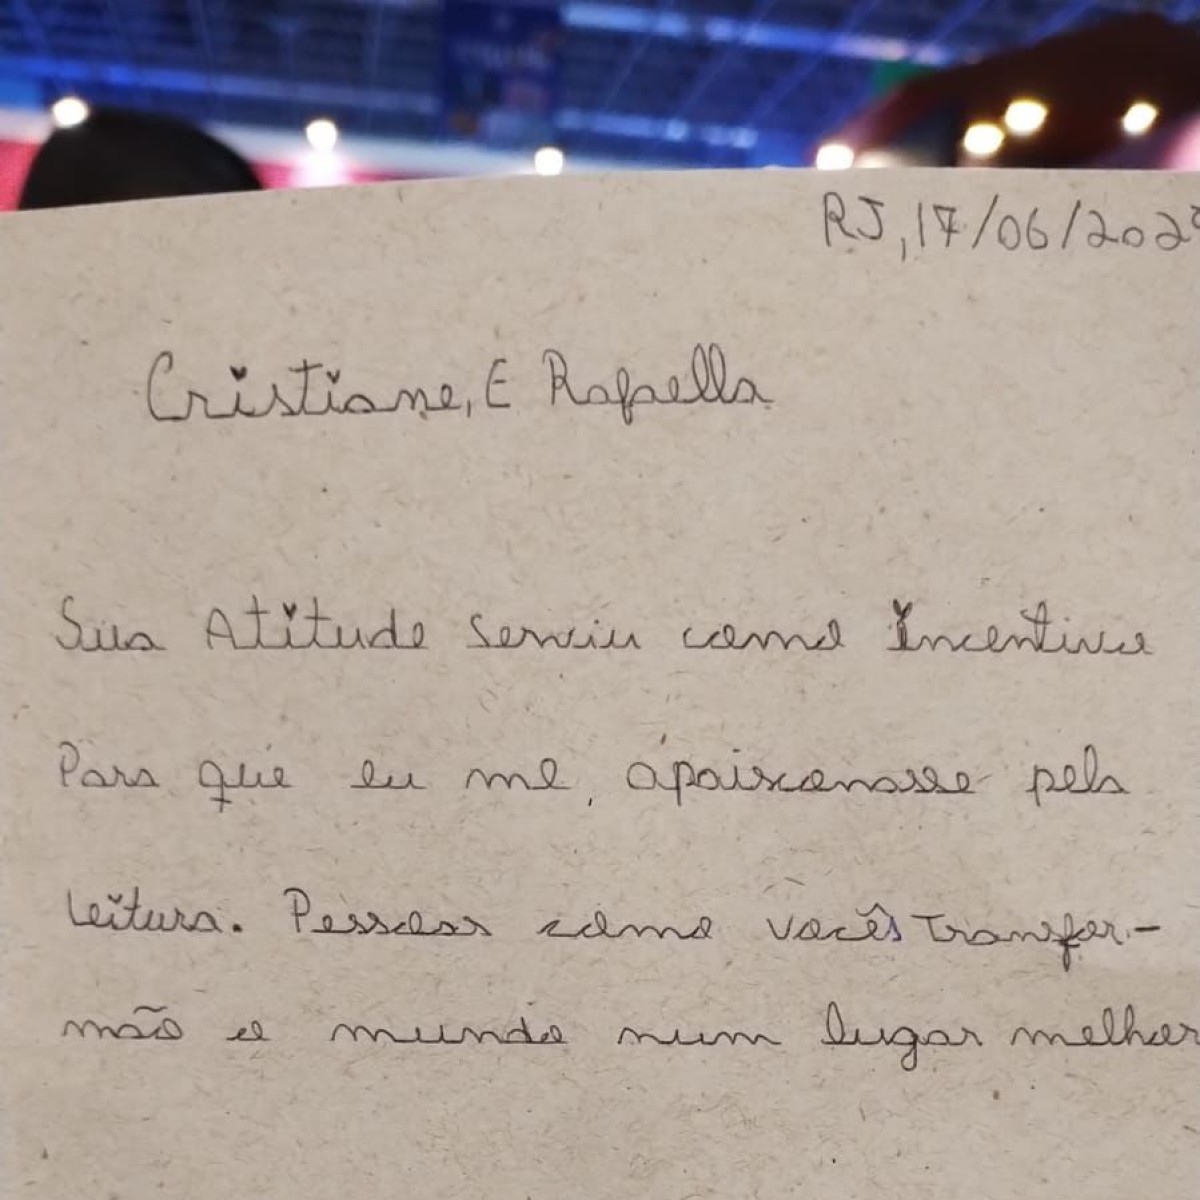 RJ, 17/06/202
Cristiane, E Rafaella
Sua Atitude serviu como Incentivo
Para que eu me, apaixonasse pela
leitura. Pessoas como vocês Transfor-
mão o mundo num lugar melhor